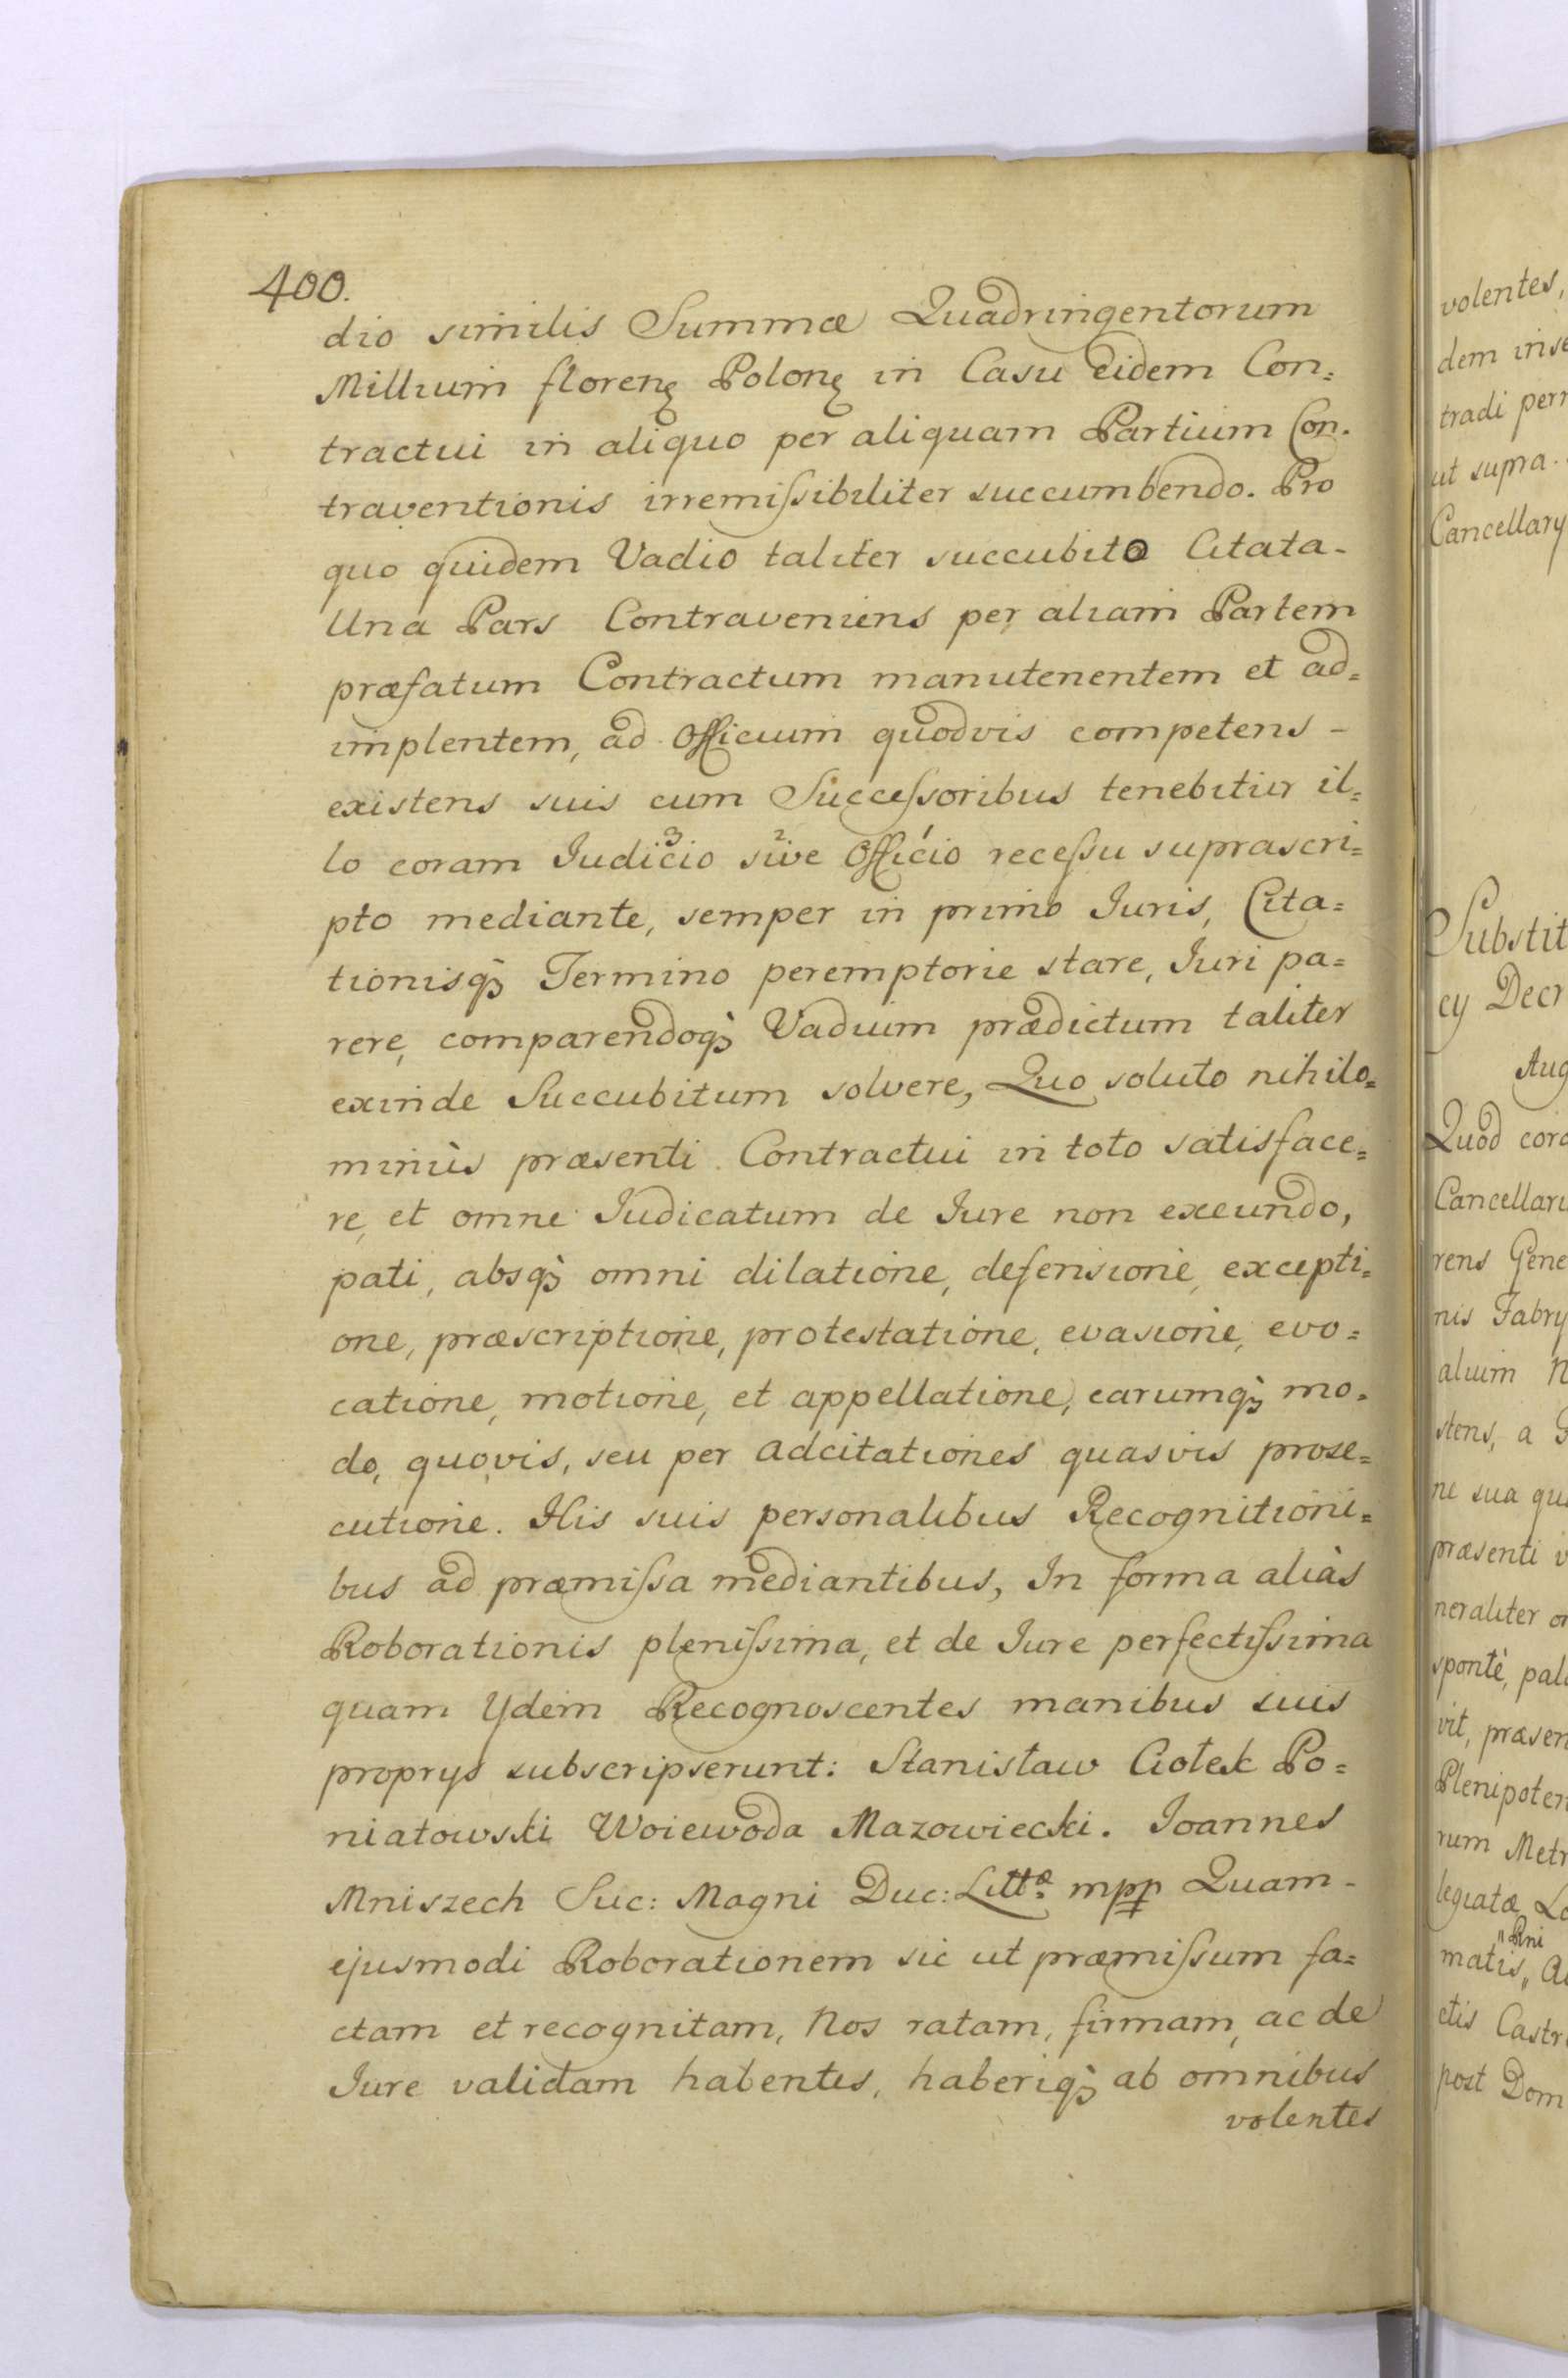 400.
dio similis Summæ Quadringentorum
Millium florenę Polonę in Casu eidem Con=
tractui in aliquo per aliquam Partium Con.
traventionis irremiſsibiliter succumbendo. Pro
quo quidem Vadio taliter succubito Citata-
Una Pars Contraveniens per aliam Partem
præfatum Contractum manutenentem et ad=
implentem, ad Officium quodvis competens -
existens suis cum Succeſsoribus tenebitur il=
lo coram Iudicio³ sive² Officio¹ receſsu suprascri=
pto mediante, semper in primo Iuris, Cita=
tionisq̃ Termino peremptorie stare, Iuri pa=
rere, comparendoq̃ Vadium prædictum taliter
exinde Succubitum solvere, Quo soluto nihilo=
minùs præsenti Contractui in toto satisface=
re, et omne Iudicatum de Iure non exeundo,
pati, absq̃ omni dilatione, defensione, excepti=
one, præscriptione, protestatione, evasione, evo=
catione, motione, et appellatione, earumq̃ mo=
do, quovis, seu per adcitationes quasvis prose=
cutione. His suis personalibus Recognitioni=
bus ad præmiſsa mediantibus, In forma aliàs
Roborationis pleniſsima, et de Iure perfectiſsima
quam Ydem Recognoscentes manibus suis
proprys subscripserunt: Stanisław Ciołek Po=
niatowski Woiewoda Mazowiecki. Ioannes
Mniszech Suc: Magni Duc: Littæ: mpp Quam-
ejusmodi Roborationem sic ut præmiſsum fa=
ctam et recognitam, Nos ratam, firmam, ac de
Iure validam habentes, haberiq̃ ab omnibus
volentes
volentes,
dem
tradi
ut supra.
Cancellary
Substit
cy Decr
Aug
Quod cor
Cancellari
rens Gene
nis Fabry
alium N
stens, a
ne sua qu
præsenti v
neraliter
spontè, pal
vit, præsen
Plenipoten
rum Metr
legiatæ
"Rni
matis,,
ctis Castr
post Dom